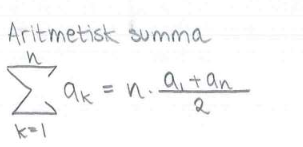 Aritmetisk summa
n
∑ aₖ = n · (a₁ + aₙ)/2
k=1